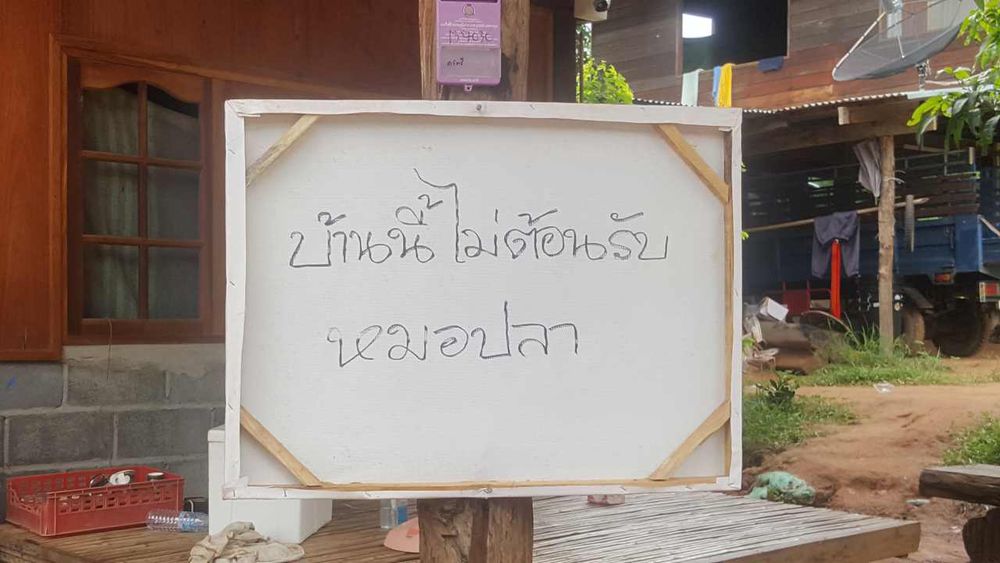 บ้านนี้ ไม่ต้อนรับ
หมอปลา